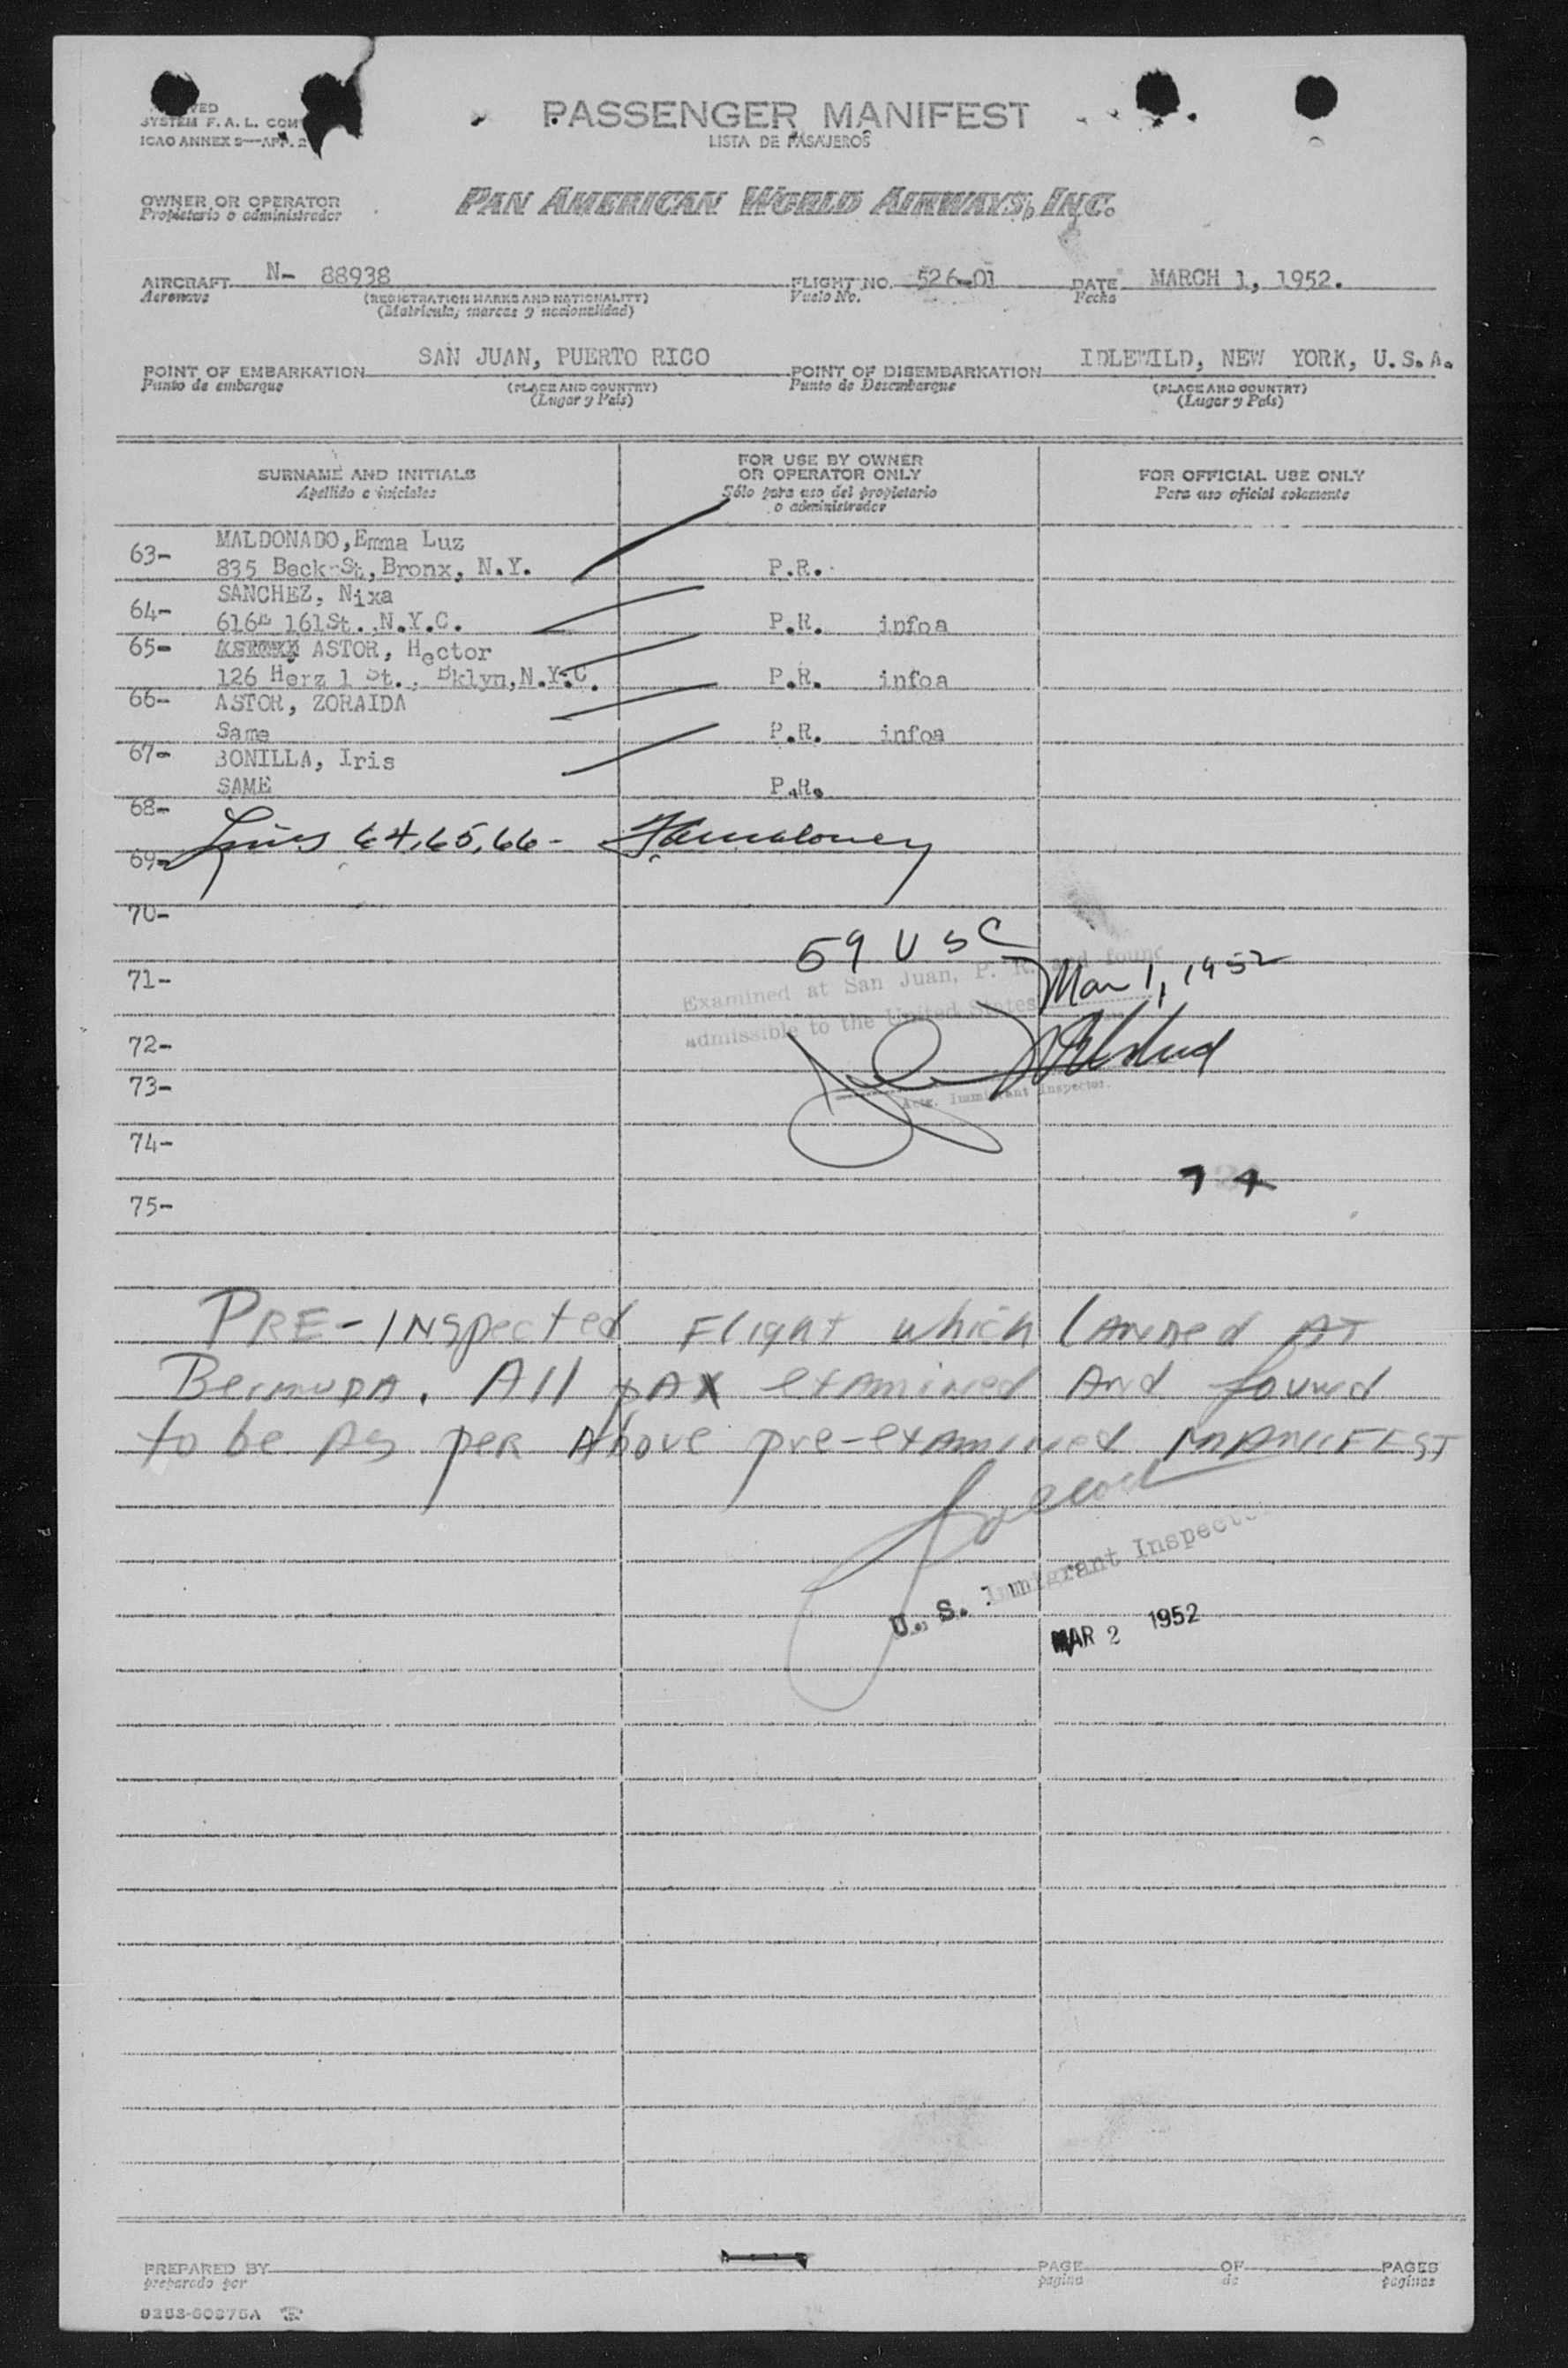 SYSTEM F. A. L. COM
ICAO ANNEX 9—APP. 2
PASSENGER MANIFEST
LISTA DE PASAJEROS
OWNER OR OPERATOR
Propietario o administrador
PAN AMERICAN WORLD AIRWAYS, INC.
AIRCRAFT N- 88938 FLIGHT NO. 526-01 DATE MARCH 1, 1952.
Aeronave (REGISTRATION MARKS AND NATIONALITY) Vuelo No. Fecha
(Matricula, marcas y nacionalidad)
POINT OF EMBARKATION SAN JUAN, PUERTO RICO POINT OF DISEMBARKATION IDLEWILD, NEW YORK, U.S.A.
Punto de embarque (PLACE AND COUNTRY) Punto de Desembarque (PLACE AND COUNTRY)
(Lugar y País) (Lugar y País)
SURNAME AND INITIALS
Apellido e iniciales
FOR USE BY OWNER
OR OPERATOR ONLY
Sólo para uso del propietario
o administrador
FOR OFFICIAL USE ONLY
Para uso oficial solamente
63- MALDONADO, Emma Luz
835 Beck St, Bronx, N.Y. P.R.
64- SANCHEZ, Nixa
161St. N.Y.C. P.R. infoa
65- ASTOR, Hector
126 Herz l St., Bklyn, N.Y.C. P.R. infoa
66- ASTOR, ZORAIDA
Same P.R. infoa
67- BONILLA, Iris
SAME P.R.
68-
69- Lines 64,65,66-
70-
59 USC
71-
Examined at San Juan, P. R. and found
Mar 1, 1952
admissible to the United States
72-
73-
Immigrant Inspector.
74-
74
75-
PRE-INspected Flight which LANDed AT
BermuDA. All pAX eXAMined And found
to be As per Above pre-eXAMined MANIFEST
U. S. Immigrant Inspector
MAR 2 1952
PREPARED BY PAGE OF PAGES
preparado por pagina de paginas